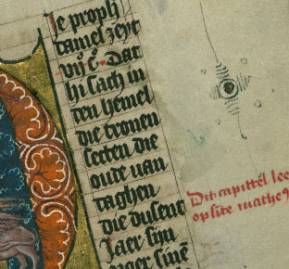 Je prophete
daniel zeyt
vijc. Dat
hi sach in
den hemel
die tronen
setten die
oude uan
daghen
die dusent
Jaer sijn
Dit capittel lee
op site mathe